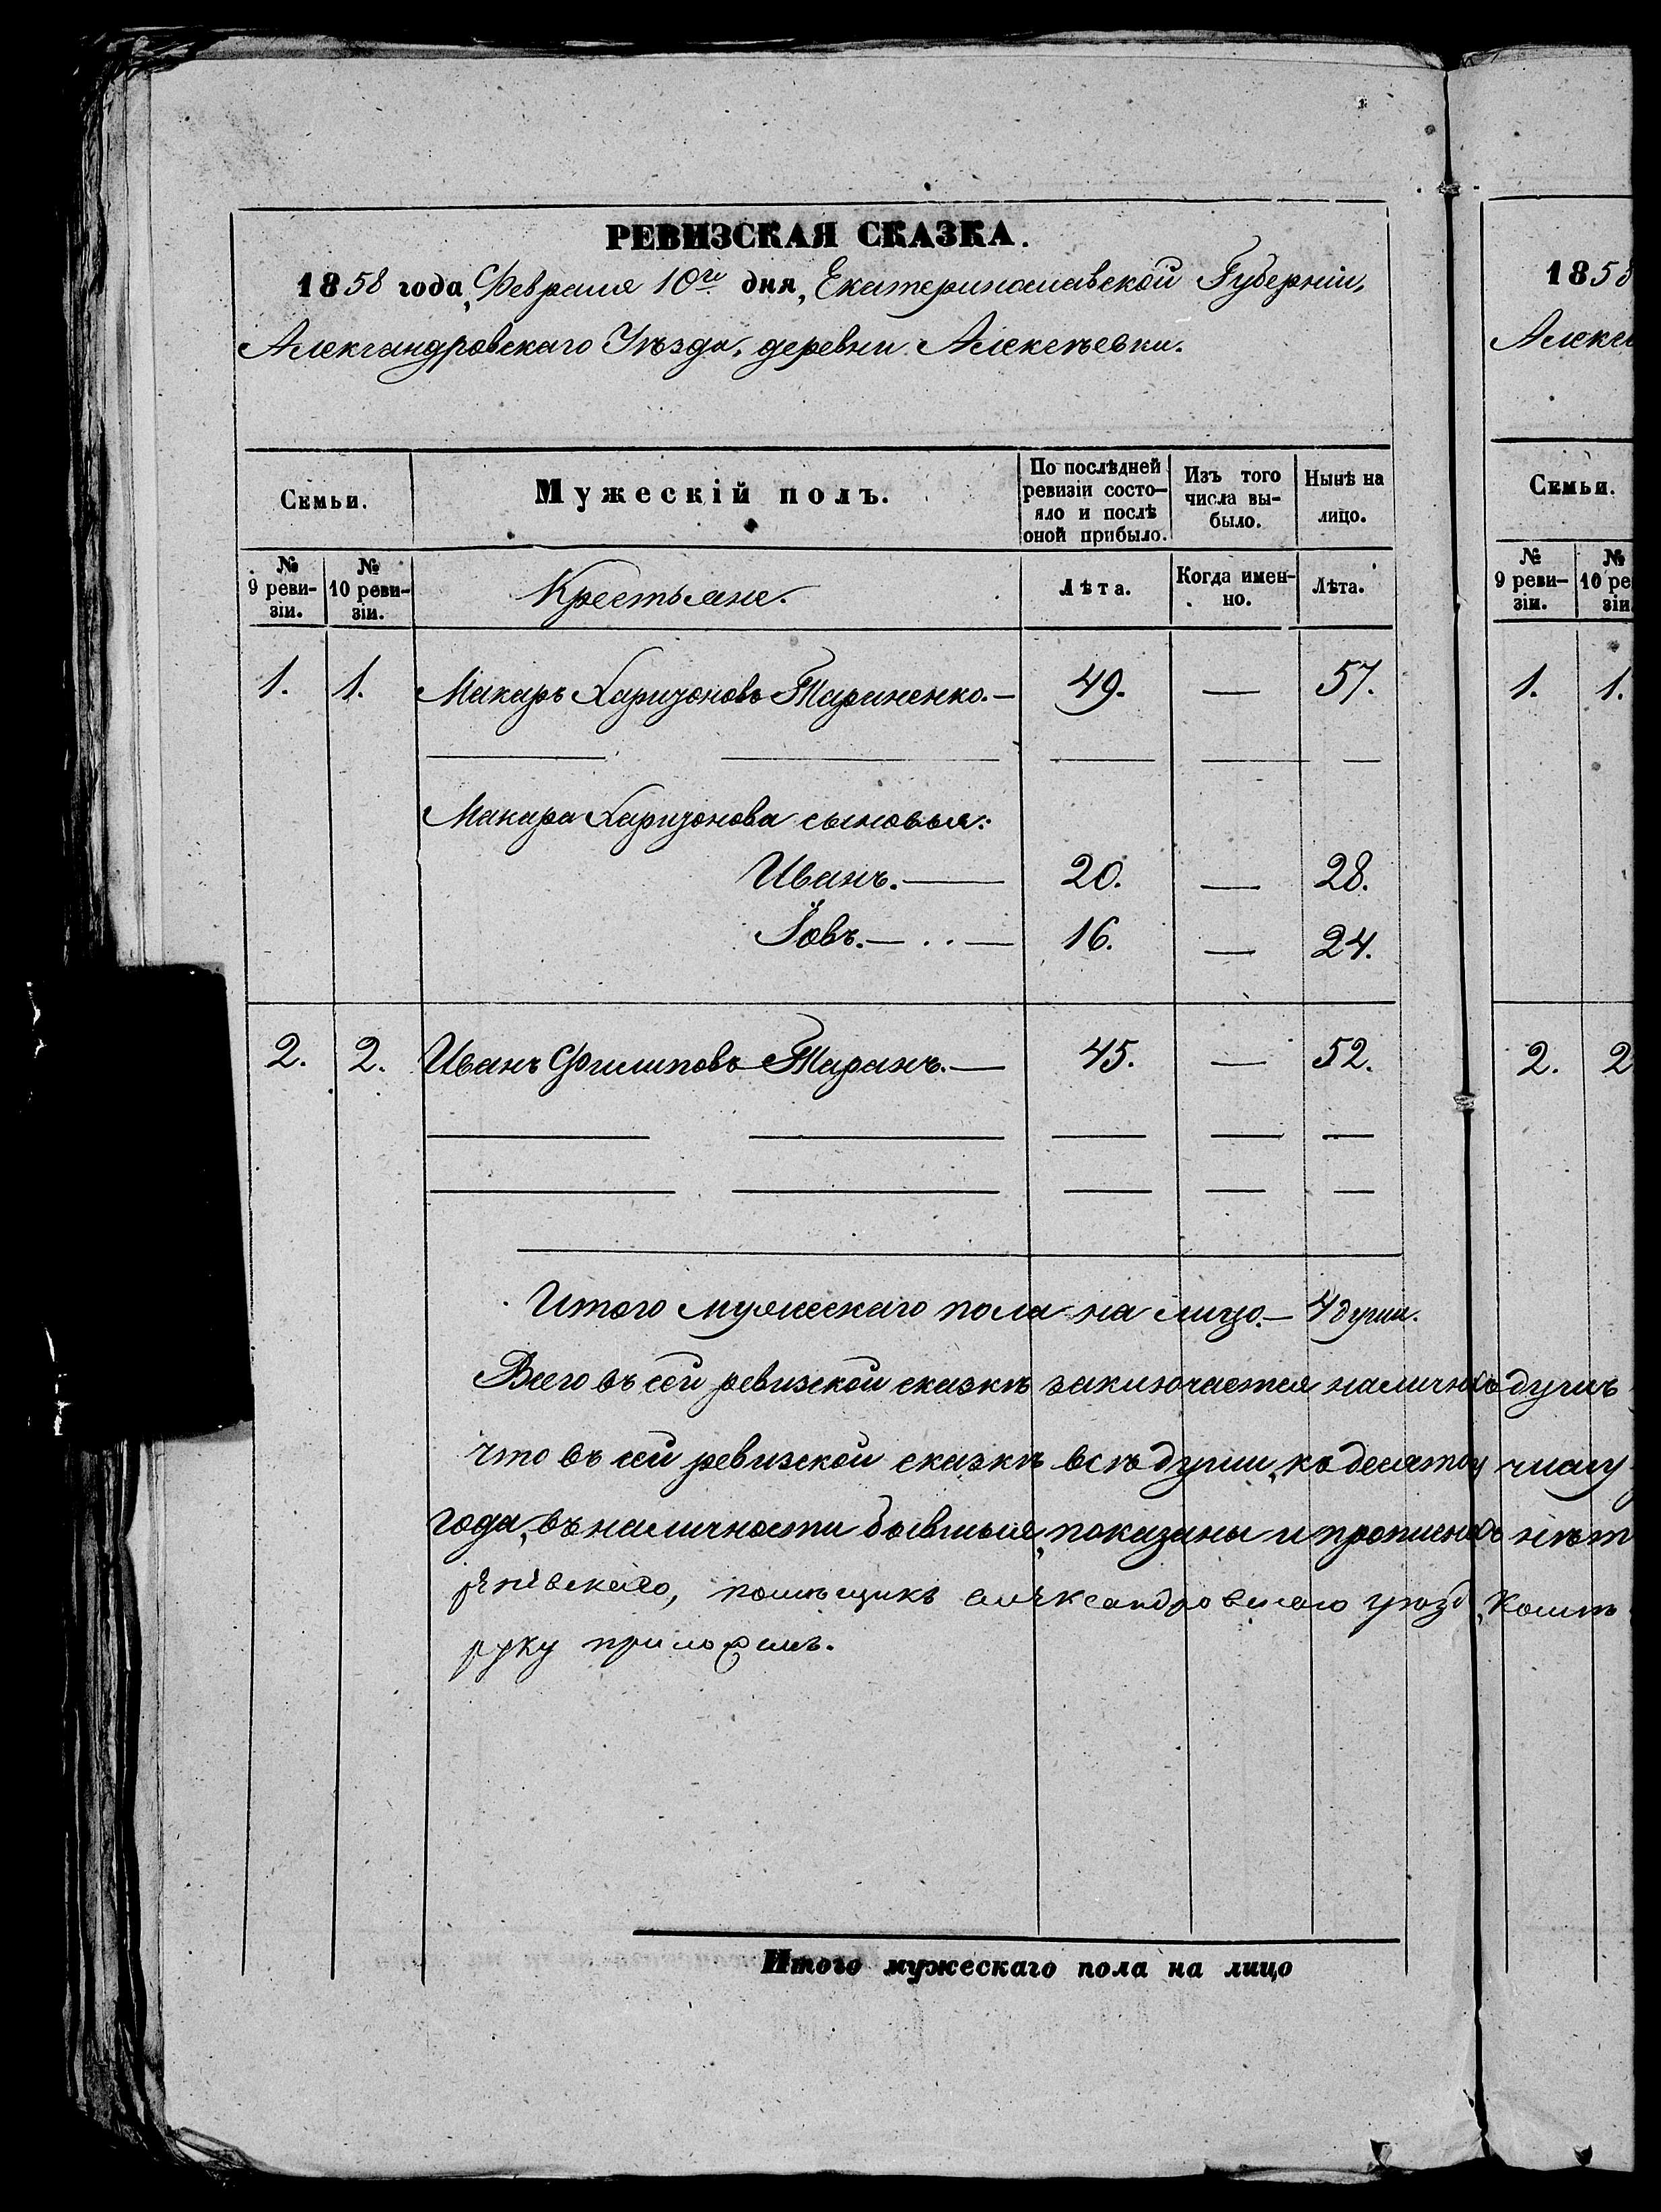 РЕВИЗСКАЯ СКАЗКА.
1858 года, Февраля 10го дня, Екатеринославской Губерніи,
Александровскаго Уѣзда, деревни Алексѣевки.
Семьи.
Мужескій полъ.
По послѣдней ревизіи состо-
яло и послѣ оной прибыло.
Изъ того числа вы-
было.
Нынѣ на лицо.
№ 9 реви-
зіи.
№ 10 реви-
зіи.
Крестьяне.
Лѣта.
Когда имен-
но.
Лѣта.
1. 1. Макаръ Харизоновъ Тараненко.— 49. — 57.
Макара Харизонова сыновья:
Иванъ.— 20. — 28.
Іовъ.— 16. — 24.
2. 2. Иванъ Филиповъ Таранъ.— 45. — 52.
Итого мужескаго пола на лицо.— 4 души.
Всего въ сей ревизской сказкѣ заключается душъ
что въ сей ревизской сказкѣ всѣ души, къ числу
года, въ наличности бывшыя, показаны и
помѣщикъ александровскаго
руку приложилъ.
Итого мужескаго пола на лицо
1858
Семьи.
№ 9 реви-
зіи.
№
1. 1.
2. 2